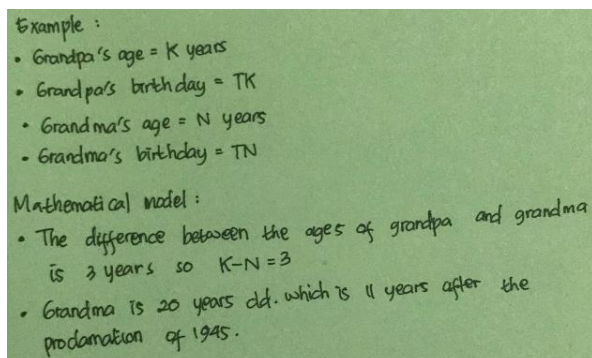 Example :
• Grandpa's age = K years
• Grandpa's birthday = TK
• Grandma's age = N years
• Grandma's birthday = TN
Mathematical model :
• The difference between the ages of grandpa and grandma
is 3 years so K-N = 3
• Grandma is 20 years old. which is 11 years after the
proclamation of 1945.